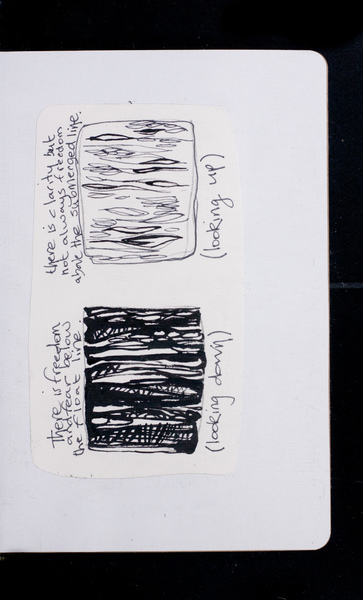 There is freedom
and fear below
the float line
(looking down)
there is clarity but
not always freedom
above the submerged line.
(looking up)